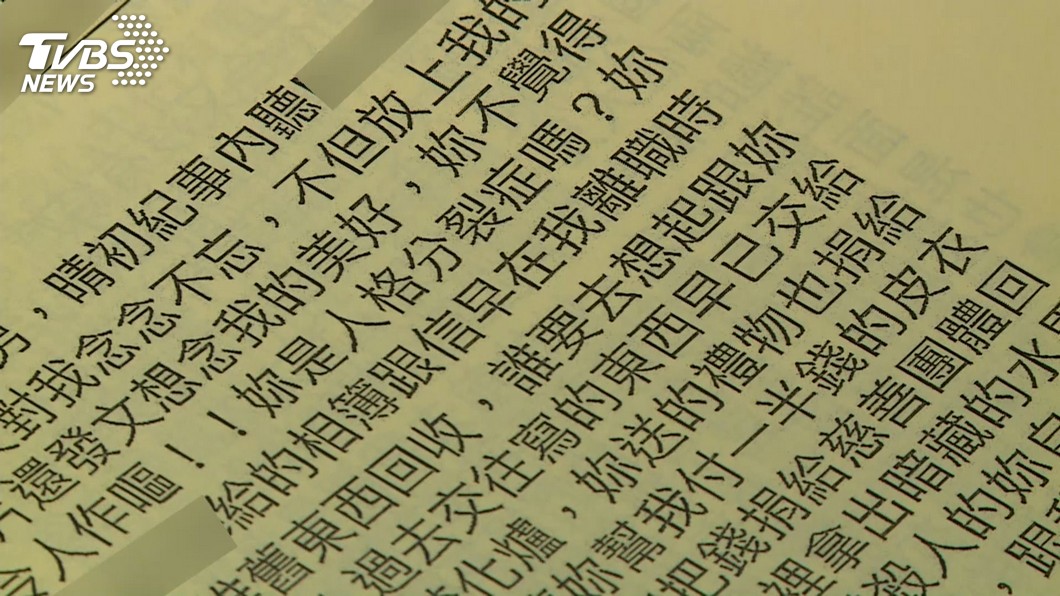 TVBS
NEWS
，晴初紀事內聽
對我念念不忘，不但放上我的
還發文想念我的美好，妳不覺得
令人作嘔！！妳是人格分裂症嗎？妳
給的相簿跟信早在我離職時
舊東西回收，誰要去想起跟妳
過去交往寫的東西早已交給
化爐，妳送的禮物也捐給
妳幫我付一半錢的皮衣
把錢捐給慈善團體回
裡拿出暗藏的水
殺人的妳自
，跟